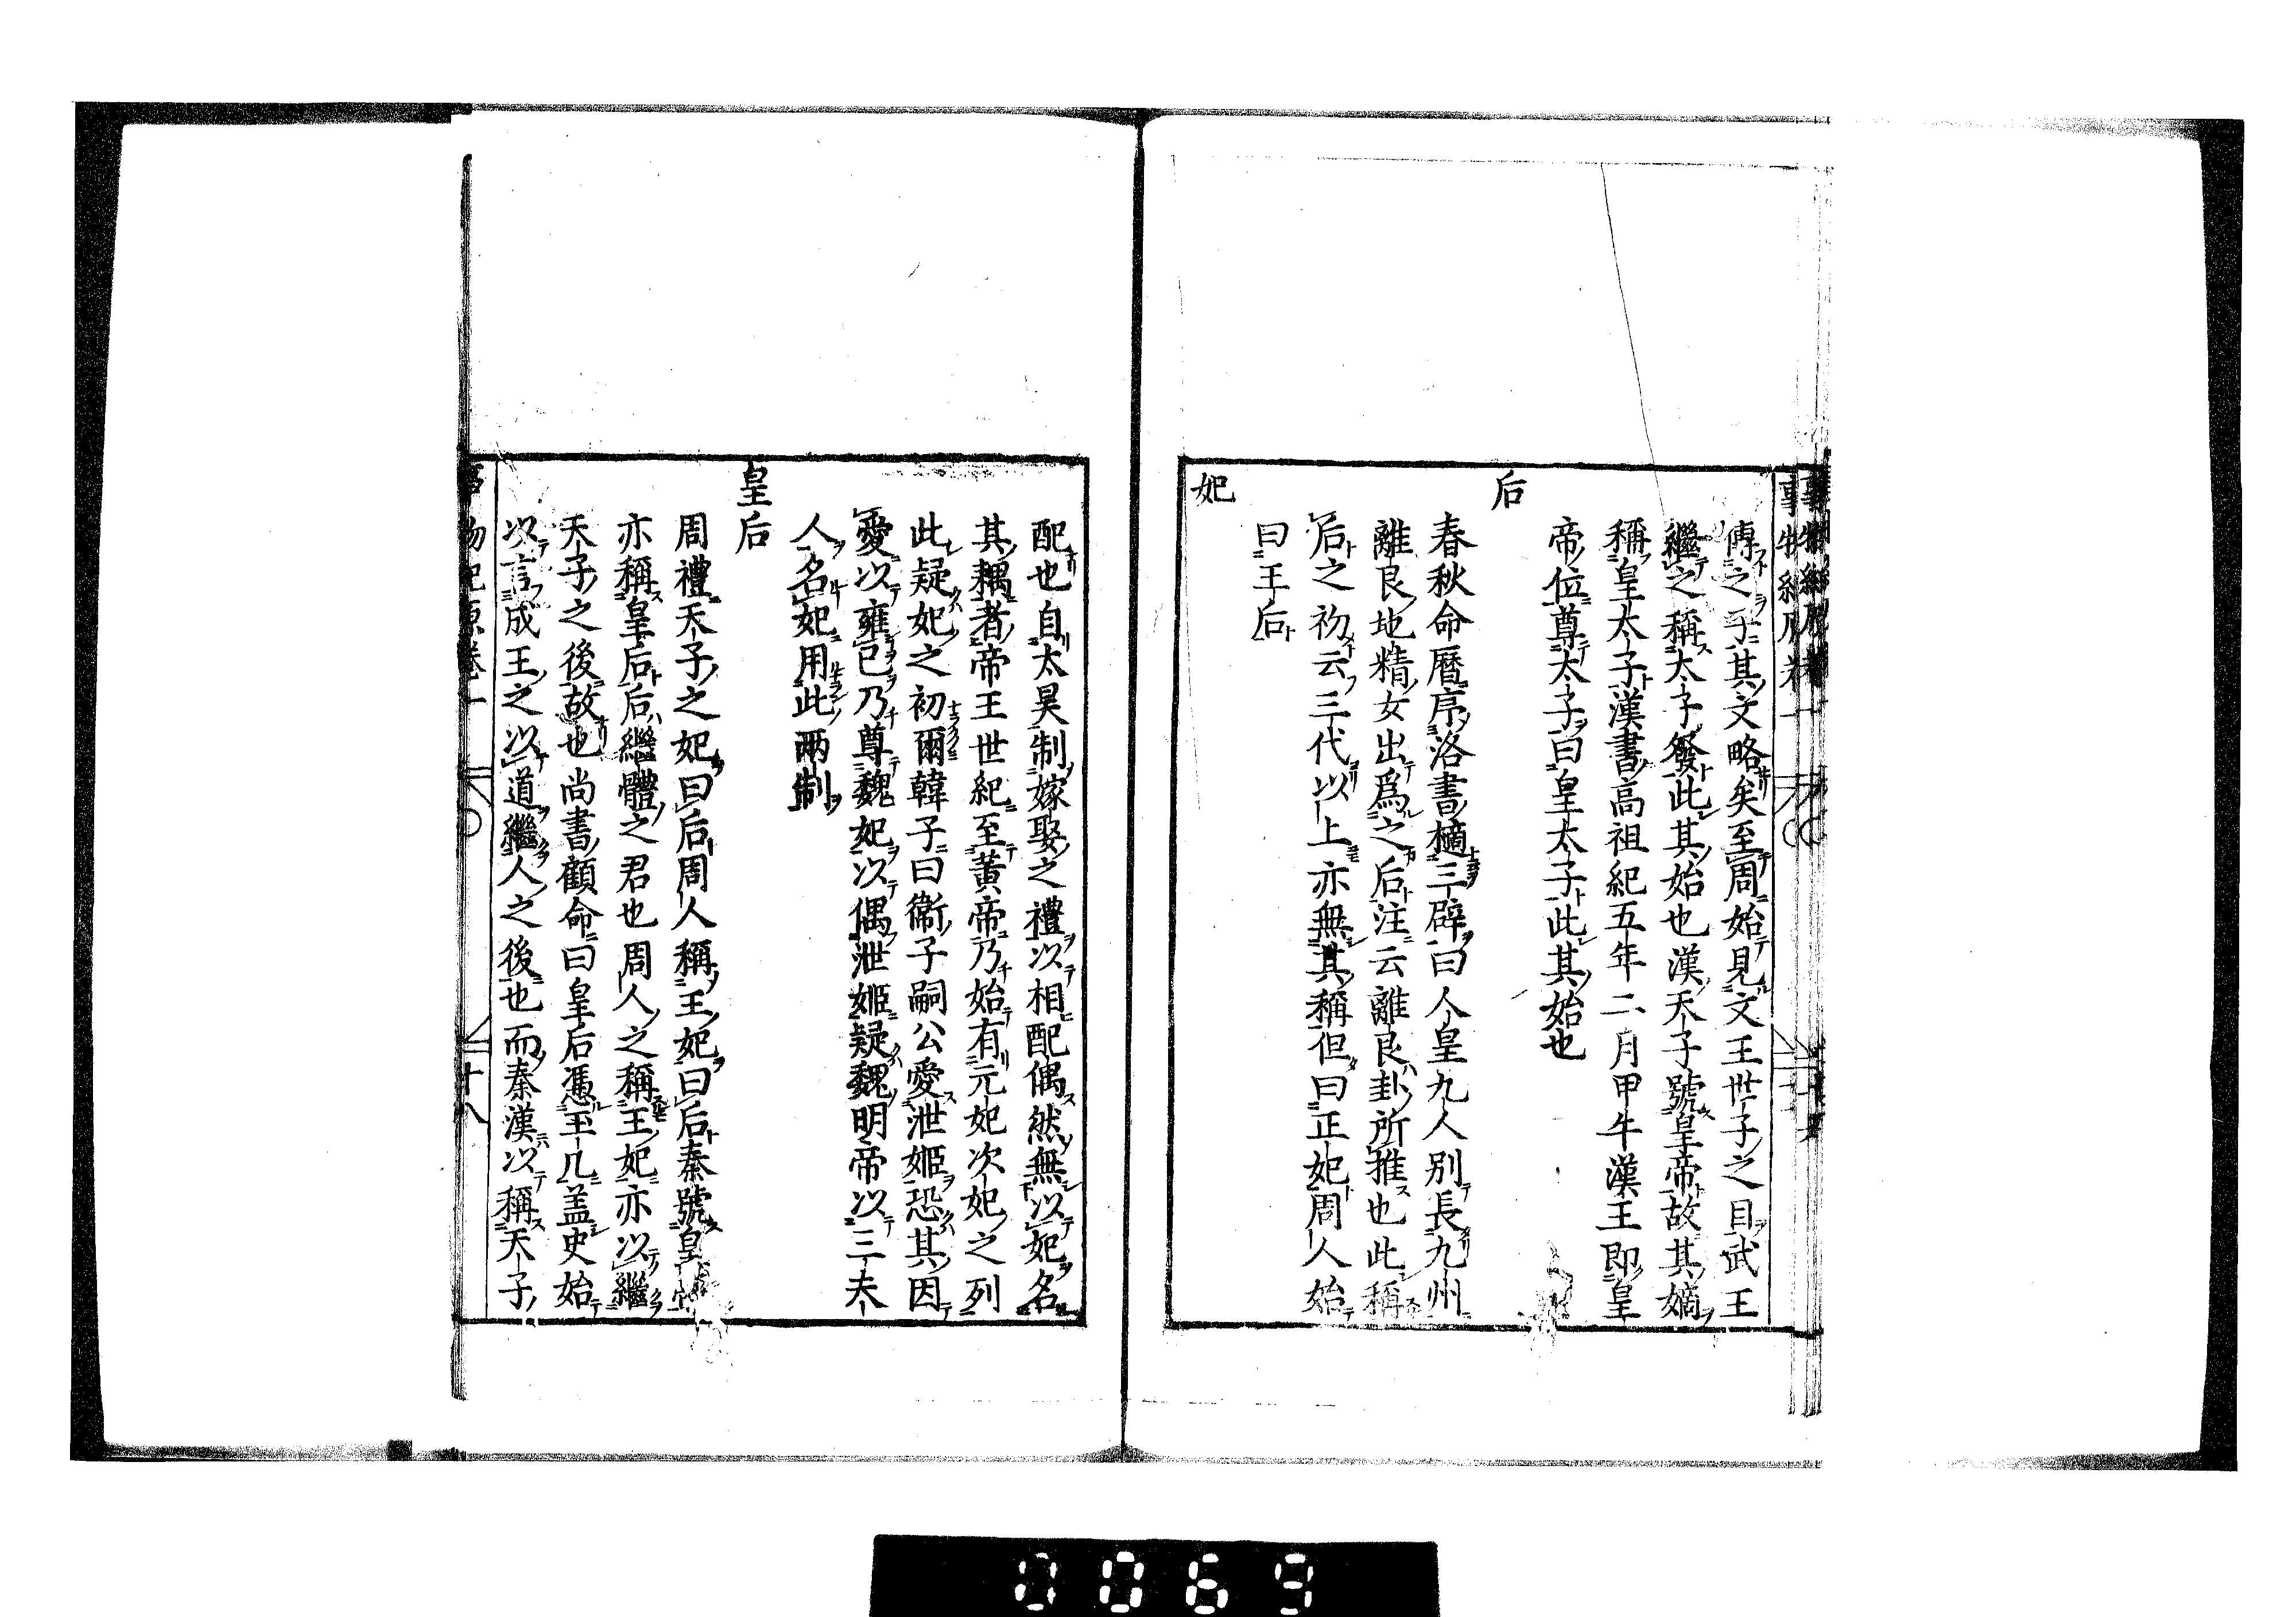 傳之于其文略矣至周始見文王世子之目武王
繼之稱太子發此其始也漢天子號皇帝故其嫡
稱皇太子漢書高祖紀五年二月甲午漢王即皇
帝位尊太子曰皇太子此其始也
后
春秋命曆序洛書摘三辟曰人皇九人別長九州
離艮地精女出爲之后注云離艮卦所推也此稱
后之初云三代以上亦無其稱但曰正妃周人始
曰王后
妃
配也自太昊制嫁娶之禮以相配偶然無以妃名
其耦者帝王世紀至黃帝乃始有元妃次妃之列
此疑妃之初爾韓子曰衞子嗣公愛泄姬恐其因
愛以雍已乃尊魏妃以偶泄姬疑魏明帝以三夫
人名妃用此兩制
皇后
周禮天子之妃曰后周人稱王妃曰后秦號皇
亦稱皇后后繼體之君也周人之稱王妃亦以繼
天子之後故也尚書顧命曰皇后憑玉几盖史始
以言成王之以道繼人之後也而秦漢以稱天子
事物紀原卷一
十八
0069